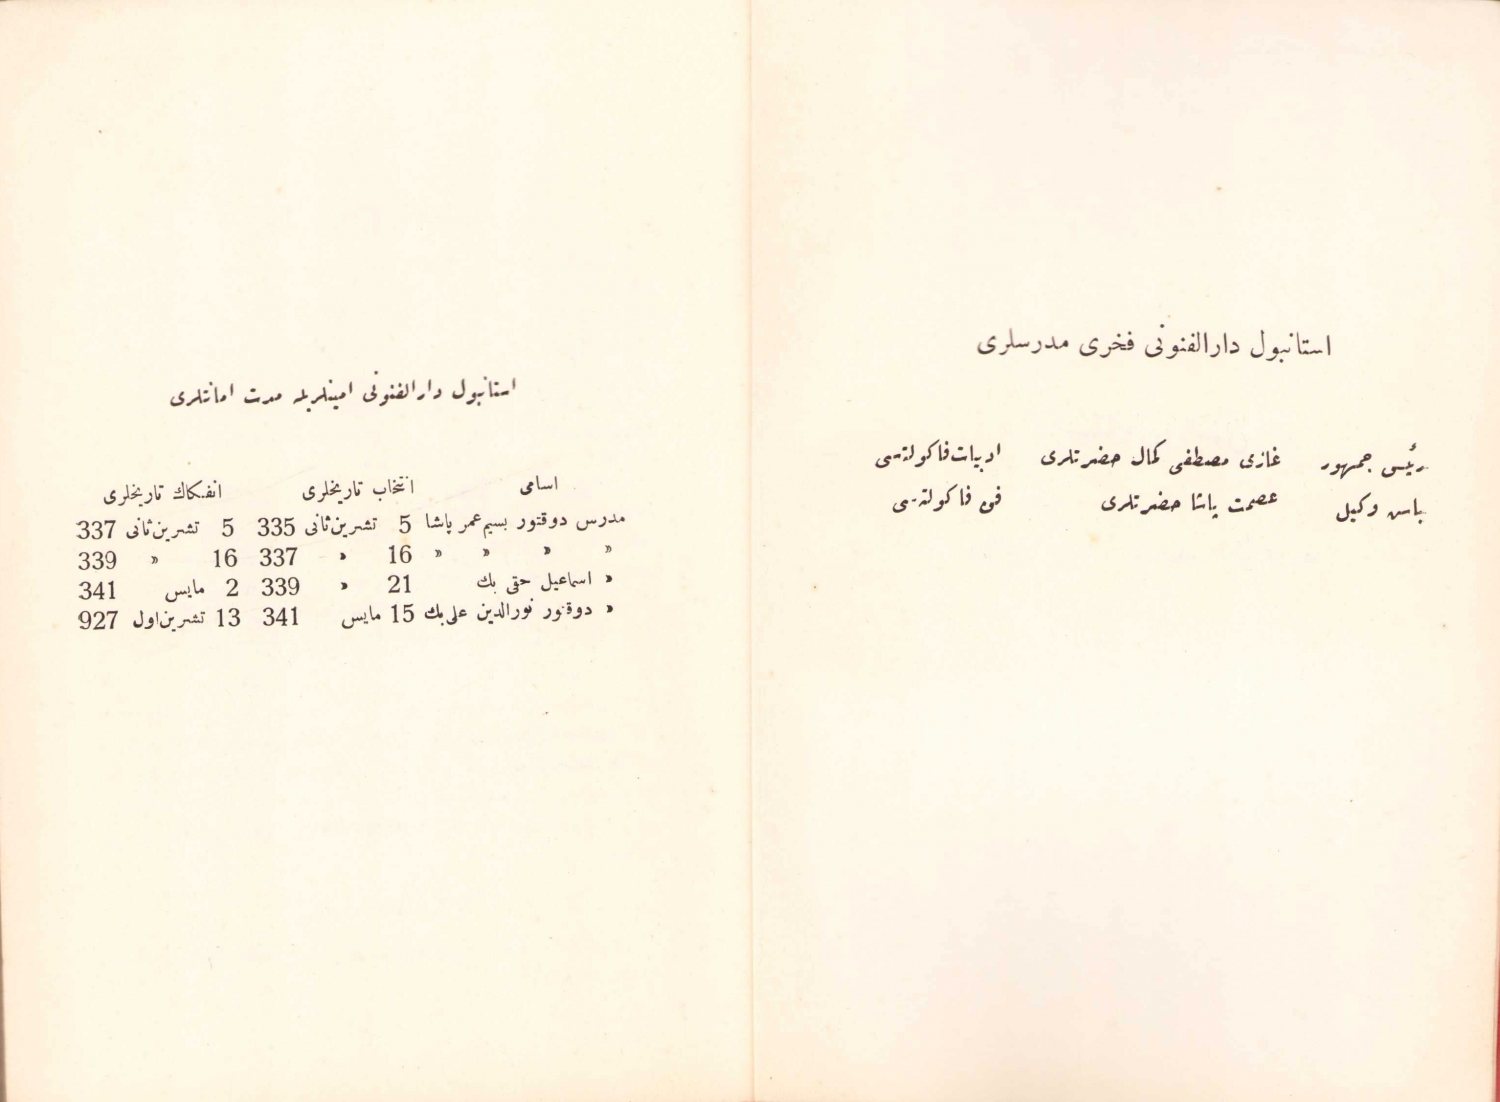 استانبول دارالفنونی فخری مدرسلری
رئیس جمهور غازی مصطفی کمال حضرتلری ادبیات فاکولته‌سی
باش وکیل عصمت پاشا حضرتلری فن فاکولته‌سی
استانبول دارالفنونی امینلریله مدت امانتلری
اسامی انتخاب تاریخلری انفکاك تاریخلری
مدرس دوقتور بسیم عمر پاشا 5 تشرین‌ثانی 335 5 تشرین‌ثانی 337
» » » » 16 » 337 16 » 339
» اسماعیل حقی بك 21 » 339 2 مایس 341
» دوقتور نورالدین علی بك 15 مایس 341 13 تشرین‌اول 927